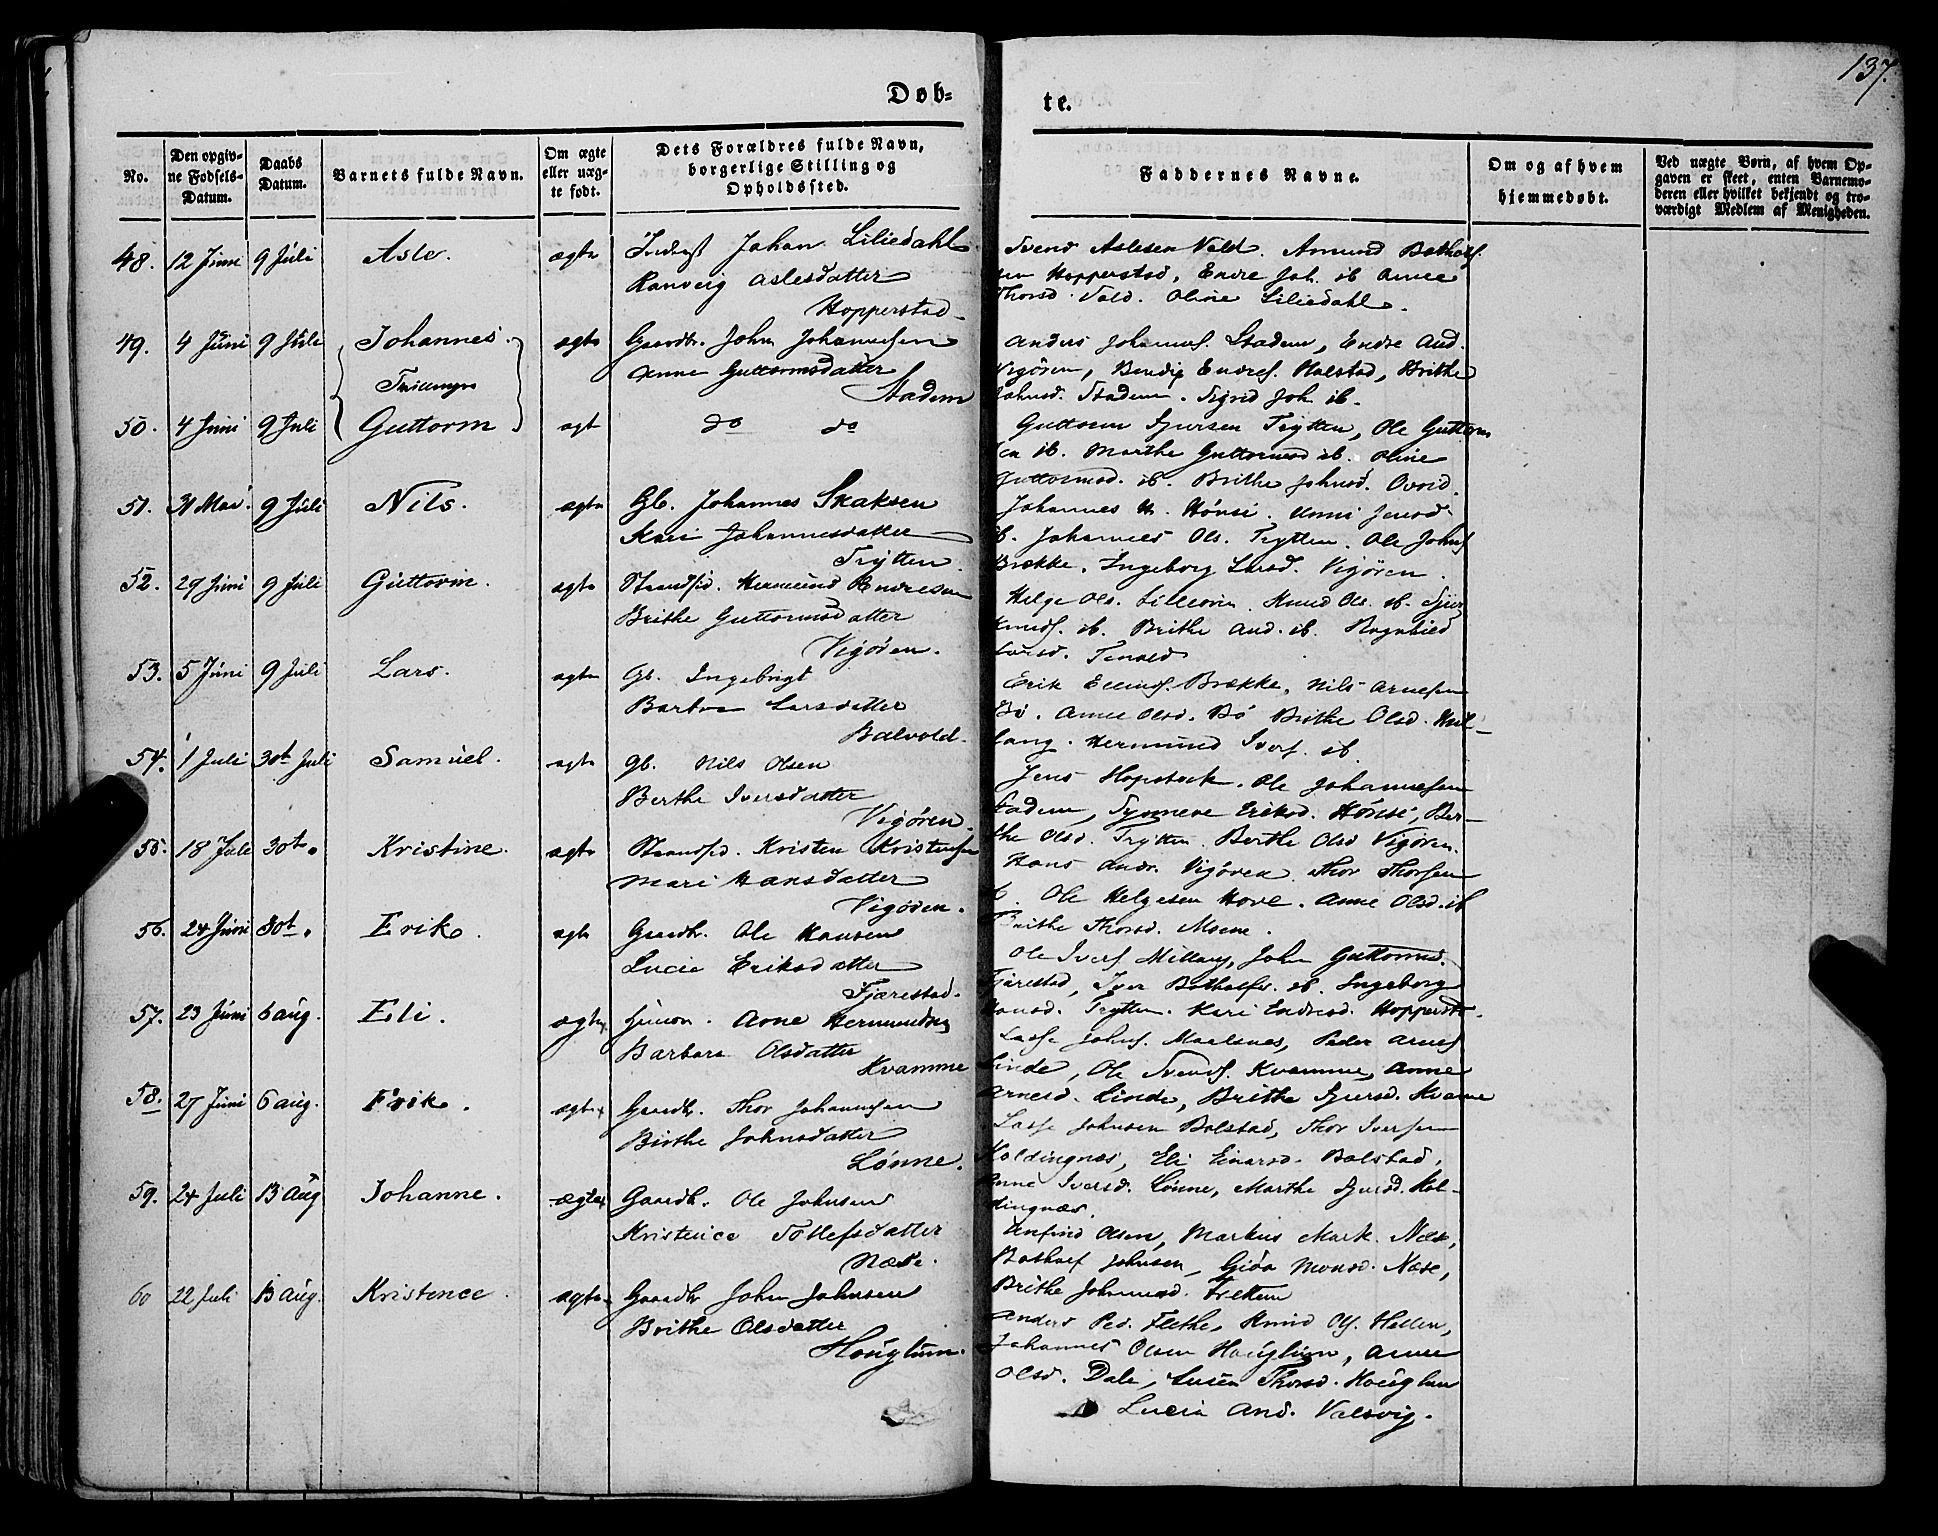 137.
Døb-
te.
No.
Den opgiv-
ne Fødsels-
Datum.
Daabs
Datum.
Barnets fulde Navn.
Om ægte
eller uæg-
te født.
Dets Forældres fulde Navn,
borgerlige Stilling og
Opholdssted.
Faddernes Navne.
Om og af hvem
hjemmedøbt.
Ved uægte Børn, af hvem Op-
gaven er skeet, enten Barnemo-
deren eller hvilket bekjendt og tro-
værdigt Medlem af Menigheden.
48. 12 Juni 9 Juli Asle. ægte Johan Liliedahl
Ranveig Aslesdatter
Hopperstad
Svend Aslesen Vold. Amund Botholf-
sen Hopperstad, Endre Joh. ib Anne
Thorsd. Vold. Oline Liliedahl.
49. 4 Juni 9 Juli Johannes. ægte Gaardbr. John Johannesen
Anne Guttormsdatter
Stadem
Tvillinger
Anders Johannes. Stadem, Endre And.
Vigøren, Bendix Endres. Halstad, Brithe
Johnsd. Stadem. Sigrid Joh. ib.
50. 4 Juni 9 Juli Guttorm ægt do do
Guttorm Sjursen Trytten, Ole Guttorm
sen ib. Marthe Guttormsd ib. Oline
Guttormsd. ib. Brithe Johnsd.
51. 31 Mai 9 Juli Nils. ægte Gb. Johannes Skaksen
Kari Johannesdatter
Trytten.
Johannes H. Hønsi. Anni Jensd.
ib. Johannes Ols. Trytten. Ole Johns
Brække. Ingeborg Larsd. Vigøren.
52. 29 Juni 9 Juli Guttorm. ægte Strandsid. Hermund Endresen
Brithe Guttormsdatter
Vigøren.
Helge Ols. Lilleorm. Knud Ols. ib. Sjur
Knuds. ib. Brithe And. ib. Ragnhild
Larsd. Tenold
53. 5 Juni 9 Juli Lars. ægte Gb. Ingebrigt
Barbra Larsdatter
Balvold.
Erik Ellings. Brække, Nils Arnesen
Bø. Anne Olsd. Bø Brithe Olsd.
Hermund Ivers. ib
54. 1 Juli 30te Juli Samuel. ægte Gb. Nils Olsen
Berthe Iversdatter
Vigøren.
Jens Hopstock. Ole Johannesen
Stadem, Synneve Eriksd. Hønsi, Ber-
the Olsd. Trytten. Berthe Olsd Vigøren.
55. 18 Juli 30te " Kristine. ægte Strandsid. Kristen Kristensen
Mari Hansdatter
Vigøren.
Hans Andr. Vigøren. Thor Thorsen
ib. Ole Helgesen Hove. Anne Olsd. ib
Brithe Thorsd. Moene.
56. 24 Juni 30te " Erik. ægte Gaardbr. Ole Hansen
Lucie Eriksdatter
Fjærestad.
Ole Ivers. John Guttorms.
Fjærestad, Iver Botholfs. ib. Ingeborg
Hansd. Trytten. Kari Endresd. Hopperst.
57. 23 Juni 6 Aug. Eli. ægte Arne Hermundsen
Barbara Olsdatter
Kvamme
Lasse Johns. Peder Arnes
Linde, Ole Svends. Kvamme, Anne
Arnesd. Linde, Brithe Sjursd. Kvamme
58. 27 Juni 6 Aug. Erik. ægte Gaardbr. Thor Johannesen
Birthe Johnsdatter
Lønne.
Lasse Johnsen Bolstad, Thor Iversen
Holdingnæs, Eli Einarsd. Bolstad,
Anne Iversd. Lønne, Marthe Sjursd. Hol-
dingnæs.
59. 24 Juli 13 Aug Johanne. ægte Gaardbr. Ole Johnsen
Kristence Tollefsdatter
Næse.
Anfind Olsen, Markus Mark. Næse,
Botholf Johnsen, Gjøa Monsd. Næse,
Brithe Johannesd.
60 22 Juli 13 Aug. Kristence. ægte Gaardbr John Johnsen
Brithe Olsdatter
Houglum.
Anders Ped. Flethe, Knud Ols. Hellen,
Johannes Olsen Houglum, Anne
Olsd. Dale, Susen Thorsd. Houglum
Lucia And. Valsvig.